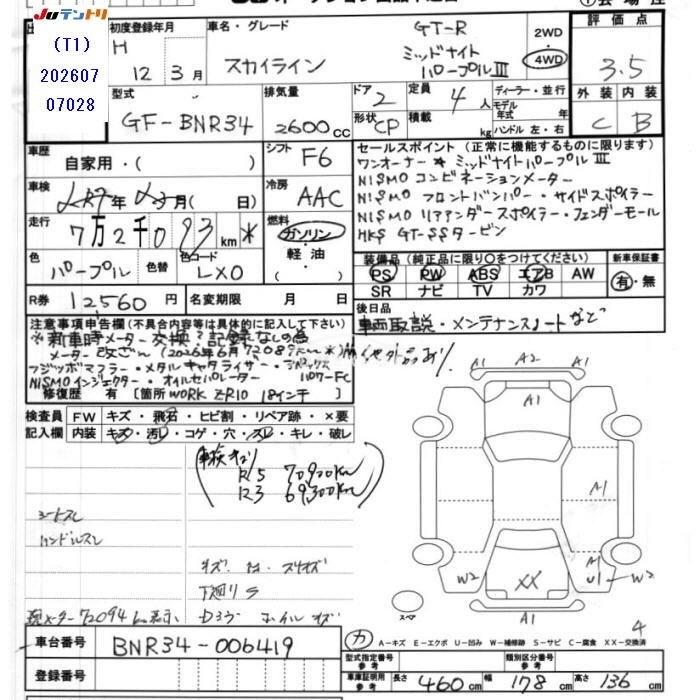 Juテントリ
(T1)
202607
07028
初度登録年月
車名・グレード
GT-R
H 12年 3月
スカイライン
ミッドナイト
パープルⅢ
2WD
4WD
評価点
3.5
外装 内装
C B
型式
GF-BNR34
排気量
2600cc
ドア 2
定員 4人
形状 CP
積載 kg
ディーラー・並行
モデル年式 年
ハンドル 左・右
車歴
自家用・( )
シフト F6
セールスポイント (正常に機能するものに限ります)
ワンオーナー * ミッドナイトパープルⅢ
NISMO コンビネーションメーター
NISMO フロントバンパー・サイドスポイラー
NISMO リアアンダースポイラー・フェンダーモール
HKS GT-SSタービン
車検
年 月( 日)
冷房 AAC
走行
7万2千093km *
燃料
ガソリン
軽油
( )
色
パープル
色替
色コード
LX0
装備品 (純正品に限り○をつけてください)
PS PW ABS エアB AW
SR ナビ TV カワ
新車保証書
有・無
R券 12560円
名変期限 月 日
後日品
車両取説・メンテナンスノートなど
注意事項申告欄(不具合内容等は具体的に記入して下さい)
※新車時メーター交換?記録なしの為
メーター改ざん(2026年6月72089km*) 他社外品あり
フジツボマフラー・メタルキャタライザー・
NISMOインジェクター・オイルセパレーター パワーFC
修復歴 有 [箇所 WORK ZR10 18インチ ]
検査員 FW キズ・飛石・ヒビ割・リペア跡・×要
記入欄 内装 キズ・汚レ・コゲ・穴・スレ・キレ・破レ
車検キロク
R5 70,900km
R3 69,300km
シートスレ
ハンドルスレ
キズ 凹 スリキズ
下廻りS
現メーター72094km表示
ホイルキズ
A1 A2 A1
A1
A1
A1
U1 W2
W2
XX
A1
スペア
4
車台番号 BNR34-006419
登録番号
カ A-キズ E-エクボ U-凹み W-補修跡 S-サビ C-腐食 XX-交換済
型式指定番号
参考
類別区分番号
参考
車庫証明用
参考
長さ 460cm 幅 178cm 高さ 136cm